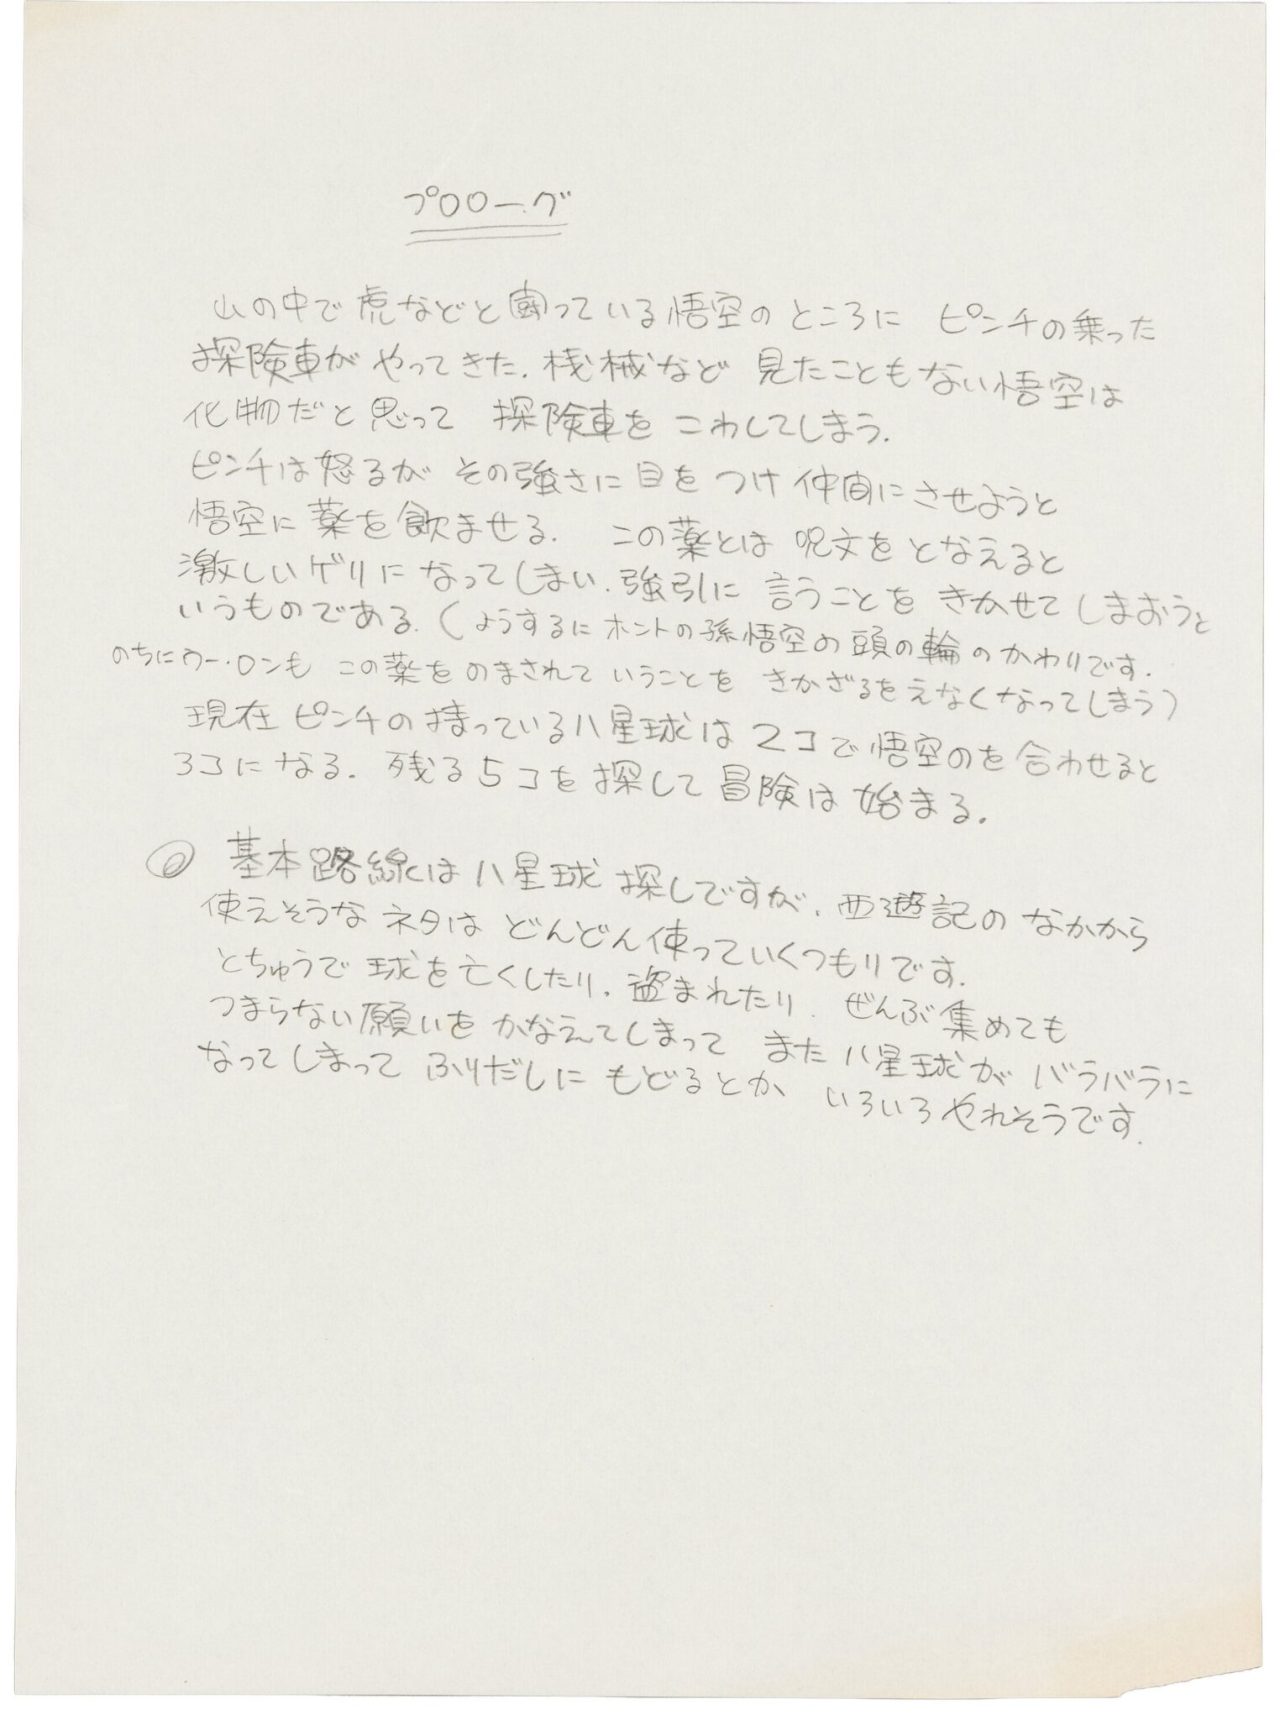 プロローグ
山の中で虎などと闘っている悟空のところに ピンチの乗った
探険車が やってきた. 桟械など 見たこともない悟空は
化物だと思って 探険車を こわしてしまう.
ピンチは怒るが その強さに目を つけ 仲間にさせようと
悟空に 薬を飲ませる. この薬とは 呪文を となえると
激しいゲリに なってしまい. 強引に 言うことを きかせて しまおうと
いうものである. (ようするに ホントの孫悟空の 頭の輪 のかわりです.
のちにウー・ロンも この薬を のまされて いうことを きかざるをえなくなってしまう)
現在 ピンチの 持っている八星球は 2コで 悟空のを 合わせると
3コになる. 残る5コを 探して 冒険は 始まる.
◎ 基本路線は 八星球 探しですが. 西遊記の なかから
使えそうな ネタは どんどん使っていくつもりです.
とちゅうで 球を亡くしたり. 盗まれたり. ぜんぶ集めても
つまらない願いを かなえてしまって また八星球が バラバラに
なってしまって ふりだしに もどるとか いろいろ やれそうです.